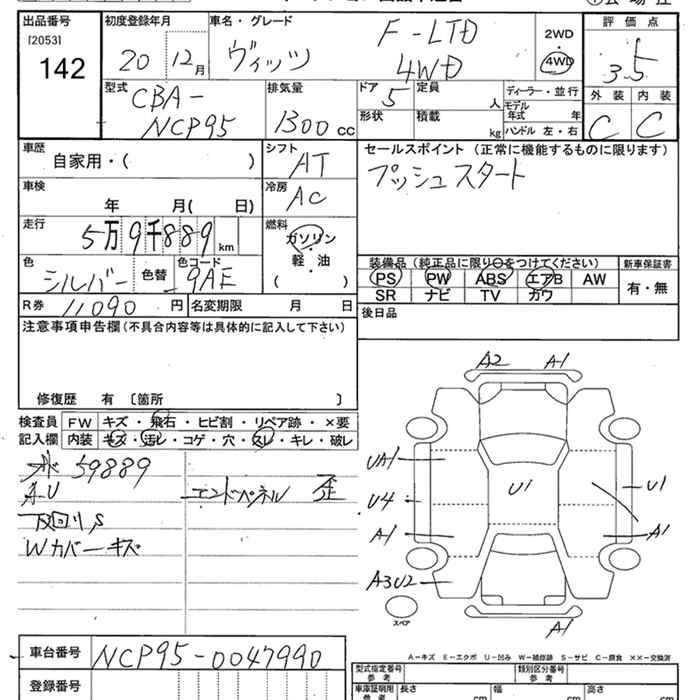 出品番号 初度登録年月 車名・グレード 2WD 評価点
[2053] 20 12月 ヴィッツ F-LTD 4WD 4WD 3.5
142 型式 排気量 ドア 定員 ディーラー・並行 外装 内装
CBA- 5 人 モデル年式 年 C C
NCP95 1300cc 形状 積載 kg ハンドル 左・右
車歴 シフト セールスポイント (正常に機能するものに限ります)
自家用・( ) AT プッシュスタート
車検 冷房
年 月( 日) AC
走行 燃料
5万9千889km ガソリン
色 色コード 軽・油 装備品(純正品に限り○をつけてください) 新車保証書
シルバー 色替 9AE ( ) PS PW ABS エアB AW 有・無
R券 11090円 名変期限 月 日 SR ナビ TV カワ
注意事項申告欄(不具合内容等は具体的に記入して下さい) 後日品
修復歴 有 〔箇所 〕
検査員 FW キズ・飛石・ヒビ割・リペア跡・×要
記入欄 内装 キズ・汚レ・コゲ・穴・スレ・キレ・破レ
59889
エンドパネル 歪
Wカバーキズ
A2 A1
UA1
U4 U1 U1
A1 A1
A3U2
スペア A1
A-キズ E-エクボ U-凹み W-補修跡 S-サビ C-腐食 ××-交換済
車台番号 NCP95-0047990 型式指定番号 参考 類別区分番号 参考
登録番号 車庫証明用 参考 長さ cm 幅 cm 高さ cm